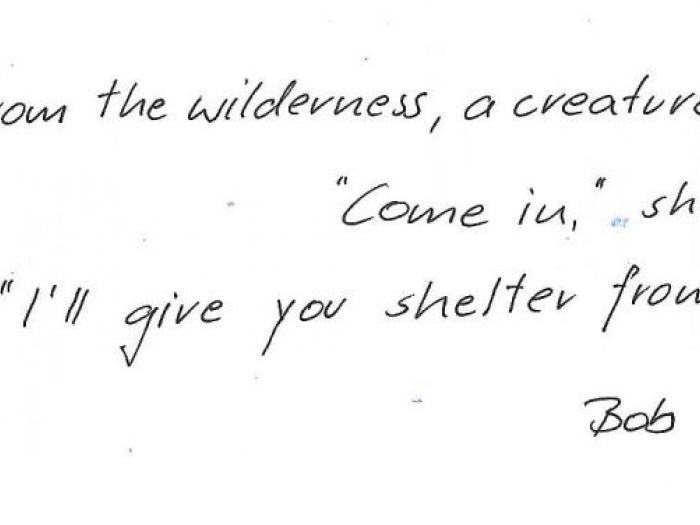 om the wilderness, a creatur
"Come in," sh
"I'll give you shelter from
Bob